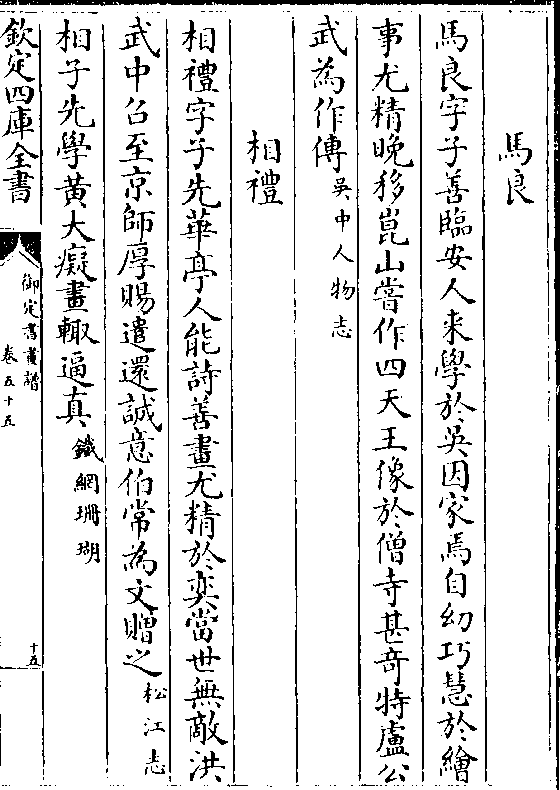 馬良
馬良字子善臨安人来學於吳因家焉自幼巧慧於繪
事尤精晚移崑山嘗作四天王像於僧寺甚竒特盧公
武為作傳吳中人物志
相禮
相禮字子先華亭人能詩善畫尤精於奕當世無敵洪
武中召至京師厚賜遣還誠意伯常為文贈之松江志
相子先學黃大癡畫輙逼真鐵網珊瑚
欽定四庫全書
御定書畫譜
卷五十五
十五